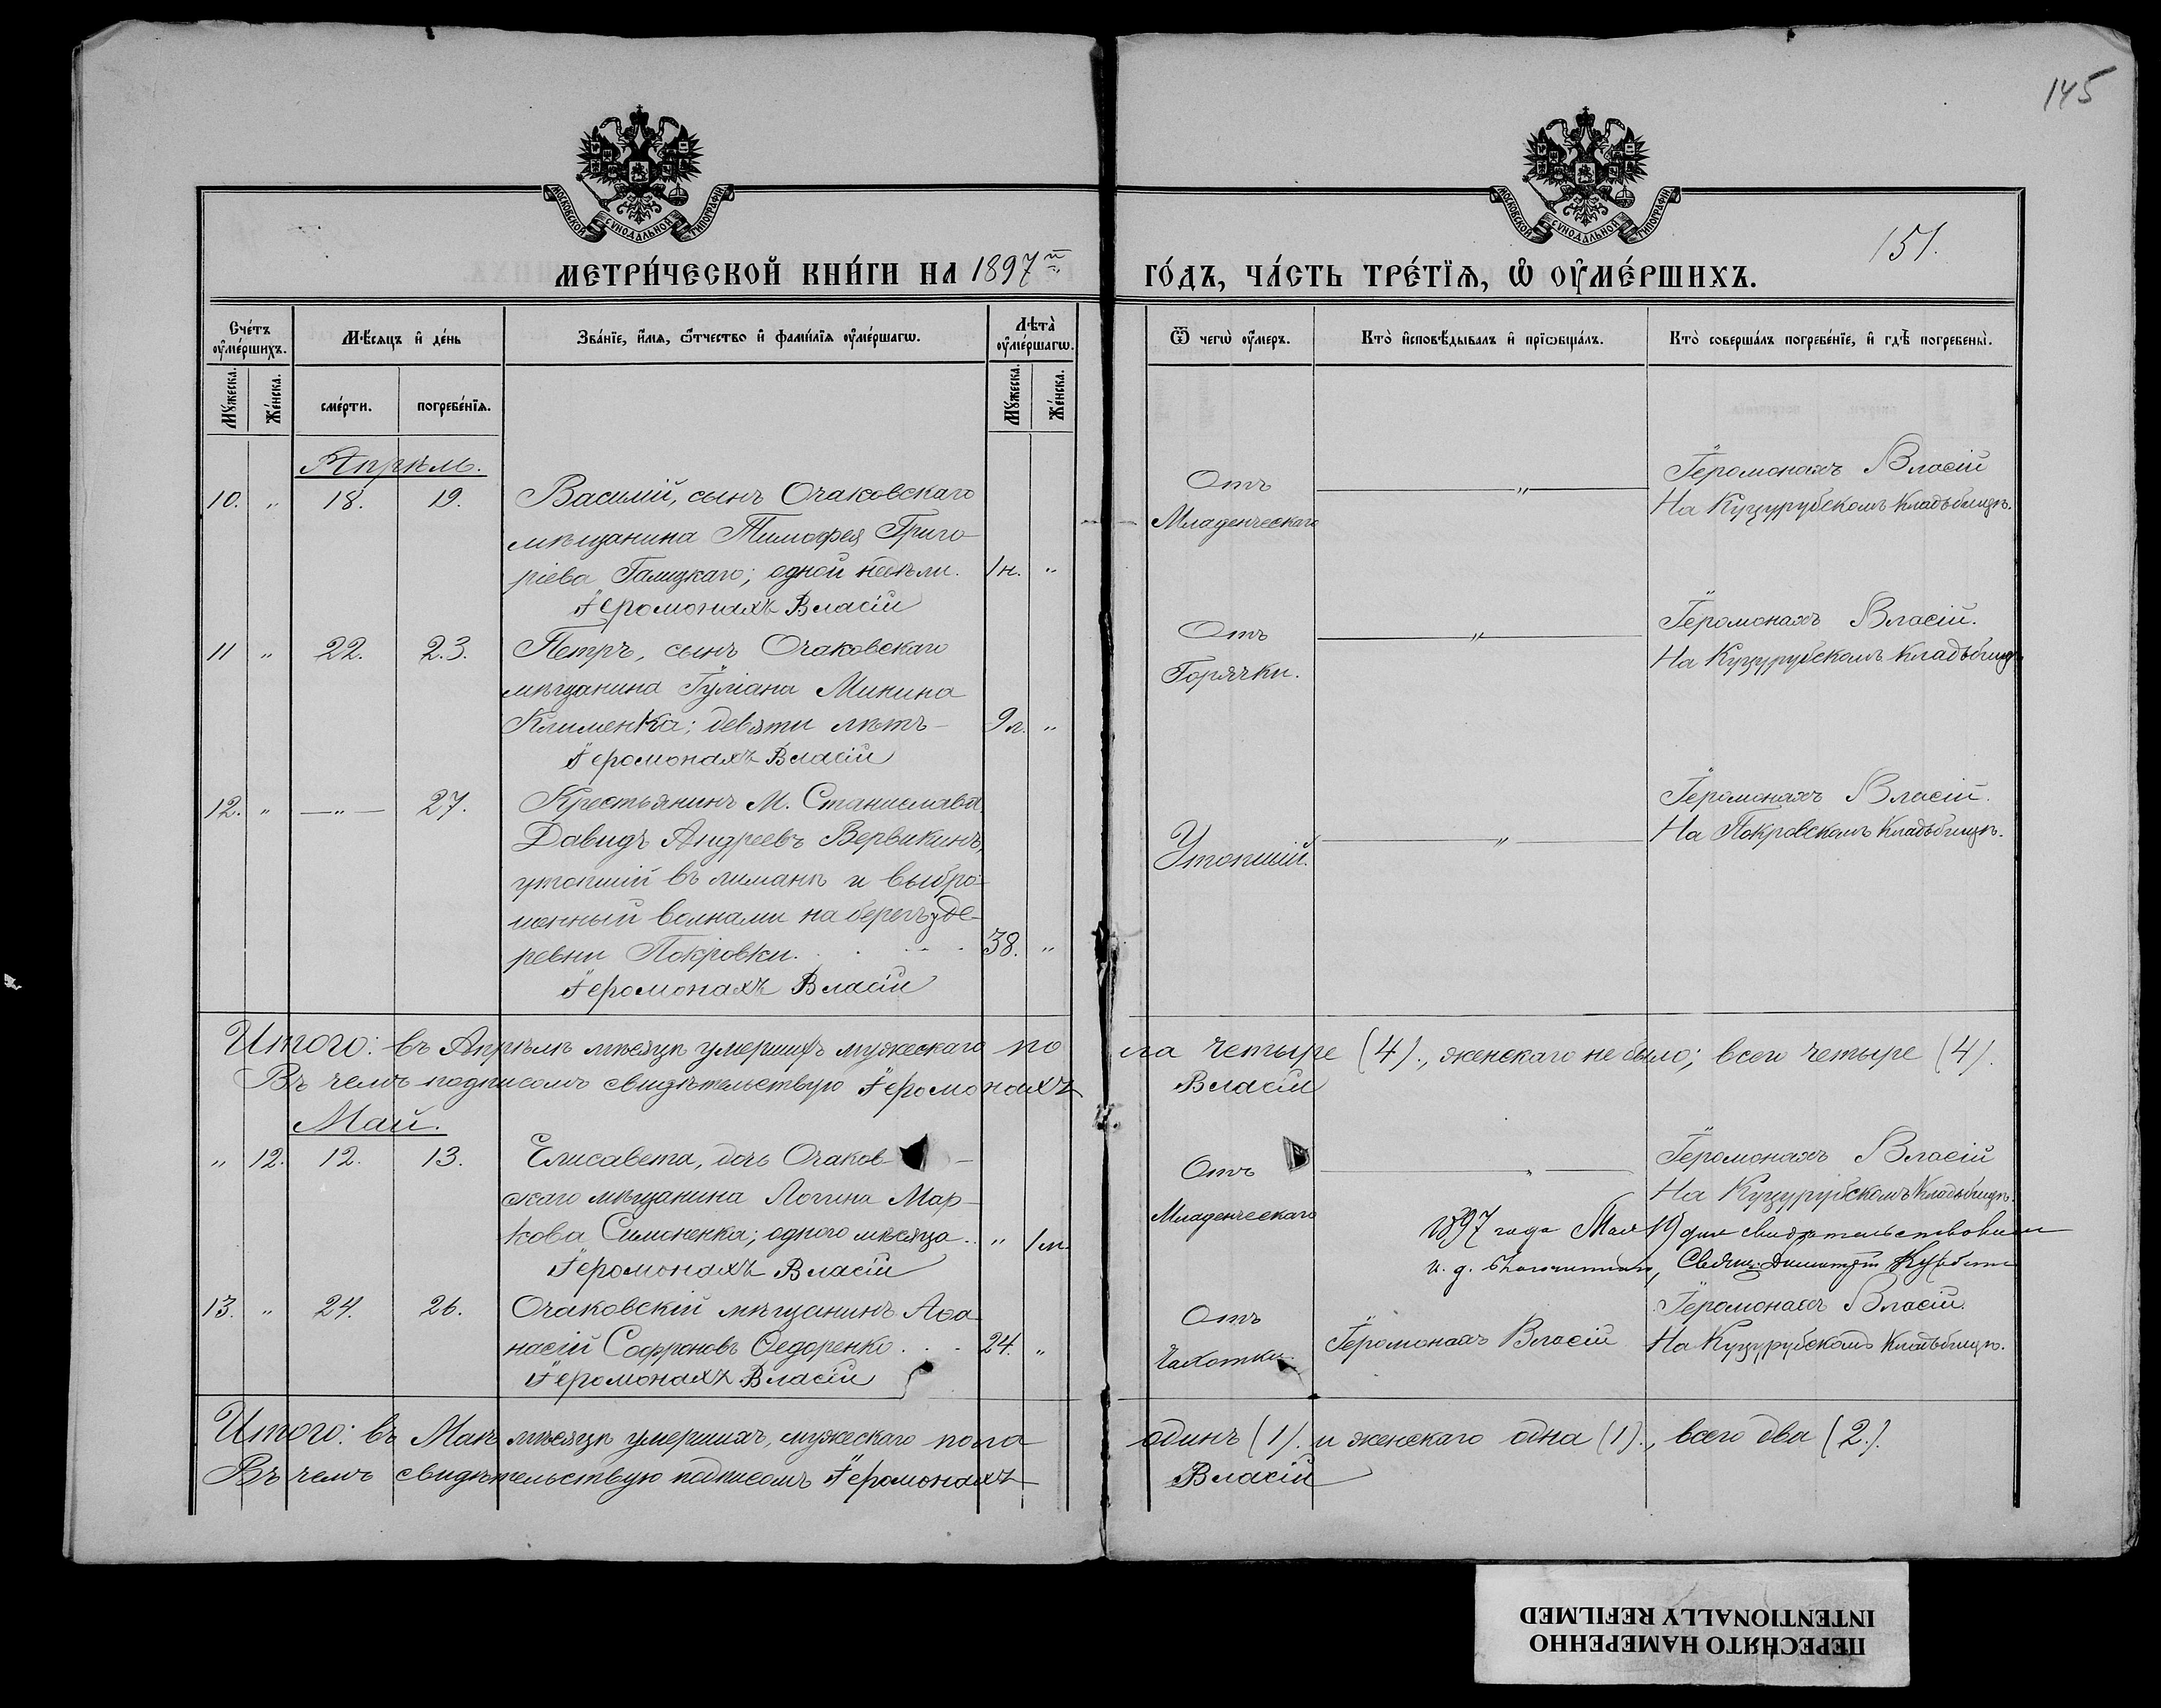 145
МОСКОВСКОЙ СУНОДАЛЬНОЙ ТИПОГРАФІИ
МОСКОВСКОЙ СУНОДАЛЬНОЙ ТИПОГРАФІИ
151.
МЕТРИ́ЧЕСКОЙ КНИ́ГИ НА 1897й
ГО́ДЪ, ЧА́СТЬ ТРЕ́ТЇѦ, Ѡ҆ ОУ҆МЕ́РШИХЪ.
Сче́тъ оу҆ме́ршихъ.
Мѣ́сяцъ и҆ де́нь
Зва́нїе, и҆́мѧ, ѻ҆́тчество и҆ фами́лїѧ оу҆ме́ршагѡ.
Лѣ̀та оу҆ме́ршагѡ.
Ѿ чегѡ̀ оу҆́меръ.
Кто̀ и҆сповѣ́дывалъ и҆ прїѡбща́лъ.
Кто̀ соверша́лъ погребе́нїе, и҆ гдѣ̀ погребены̀.
Мꙋ́жеска.
Же́нска.
сме́рти.
погребе́нїѧ.
Мꙋ́жеска.
Же́нска.
Апрѣль.
10. " 18. 19. Василій, сынъ Очаковскаго
мѣщанина Тимофея Григо
ріева Галицкаго; одной недѣли. 1н. "
Іеромонахъ Власій
Отъ
Младенческаго
"
Іеромонахъ Власій
На Куцурубскомъ кладбищѣ.
11 " 22. 23. Петръ, сынъ Очаковскаго
мѣщанина Іуліана Минина
Клименка; девяти лѣтъ 9л. "
Іеромонахъ Власій
Отъ
Горячки.
"
Іеромонахъ Власій.
На Куцурубскомъ кладбищѣ
12. " — " — 27. Крестьянинъ М. Станислава
Давидъ Андреевъ Вервикинъ,
утопшій въ лиманѣ и выбро-
шенный волнами на берегъ у де-
ревни Покровки. 38. "
Іеромонахъ Власій
Утопшій.
"
Іеромонахъ Власій.
На Покровскомъ кладбищѣ.
Итого: въ Апрѣлѣ мѣсяцѣ умершихъ мужескаго по
ла четыре (4)., женскаго не было; всего четыре (4).
Въ чемъ подписомъ свидѣтельствую Іеромонахъ
Власій
Май.
" 12. 12. 13. Елисавета, дочь Очаков-
скаго мѣщанина Логгина Мар-
кова Симоненка; одного мѣсяца. " 1м.
Іеромонахъ Власій
Отъ
Младенческаго
"
Іеромонахъ Власій
На Куцурубскомъ кладбищѣ.
1897 года Мая 19 дня свидѣтельствовалъ
и. д. Благочиннаго, Священ. Димитрій
13. " 24. 26. Очаковскій мѣщанинъ Аѳа
насій Софроновъ Ѳедоренко 24. "
Іеромонахъ Власій
Отъ
Чахотки
Іеромонахъ Власій
Іеромонахъ Власій.
На Куцурубскомъ кладбищѣ.
Итого: въ Маѣ мѣсяцѣ умершихъ, мужескаго пола
одинъ (1). и женскаго одна (1)., всего два (2.).
Въ чемъ свидѣтельствую подписомъ Іеромонахъ
Власій
ПЕРЕСНЯТО НАМЕРЕННО
INTENTIONALLY REFILMED